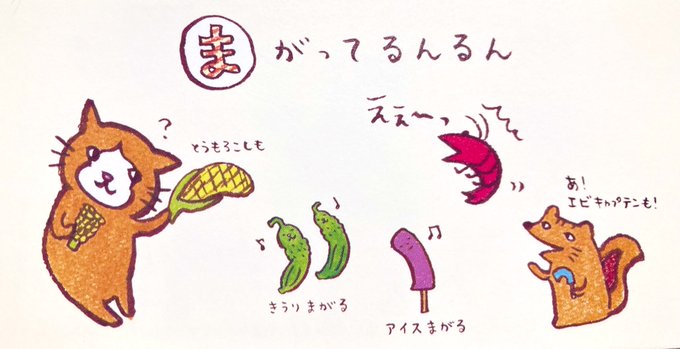 まがってるんるん
?
とうもろこしも
ええ〜っ
あ!
エビキャプテンも!
きうり まがる
アイス まがる